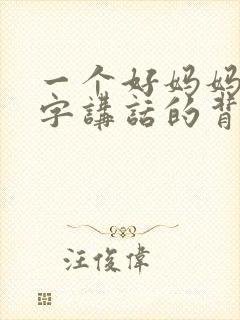 一个好妈妈
字講話的背
汪俊偉